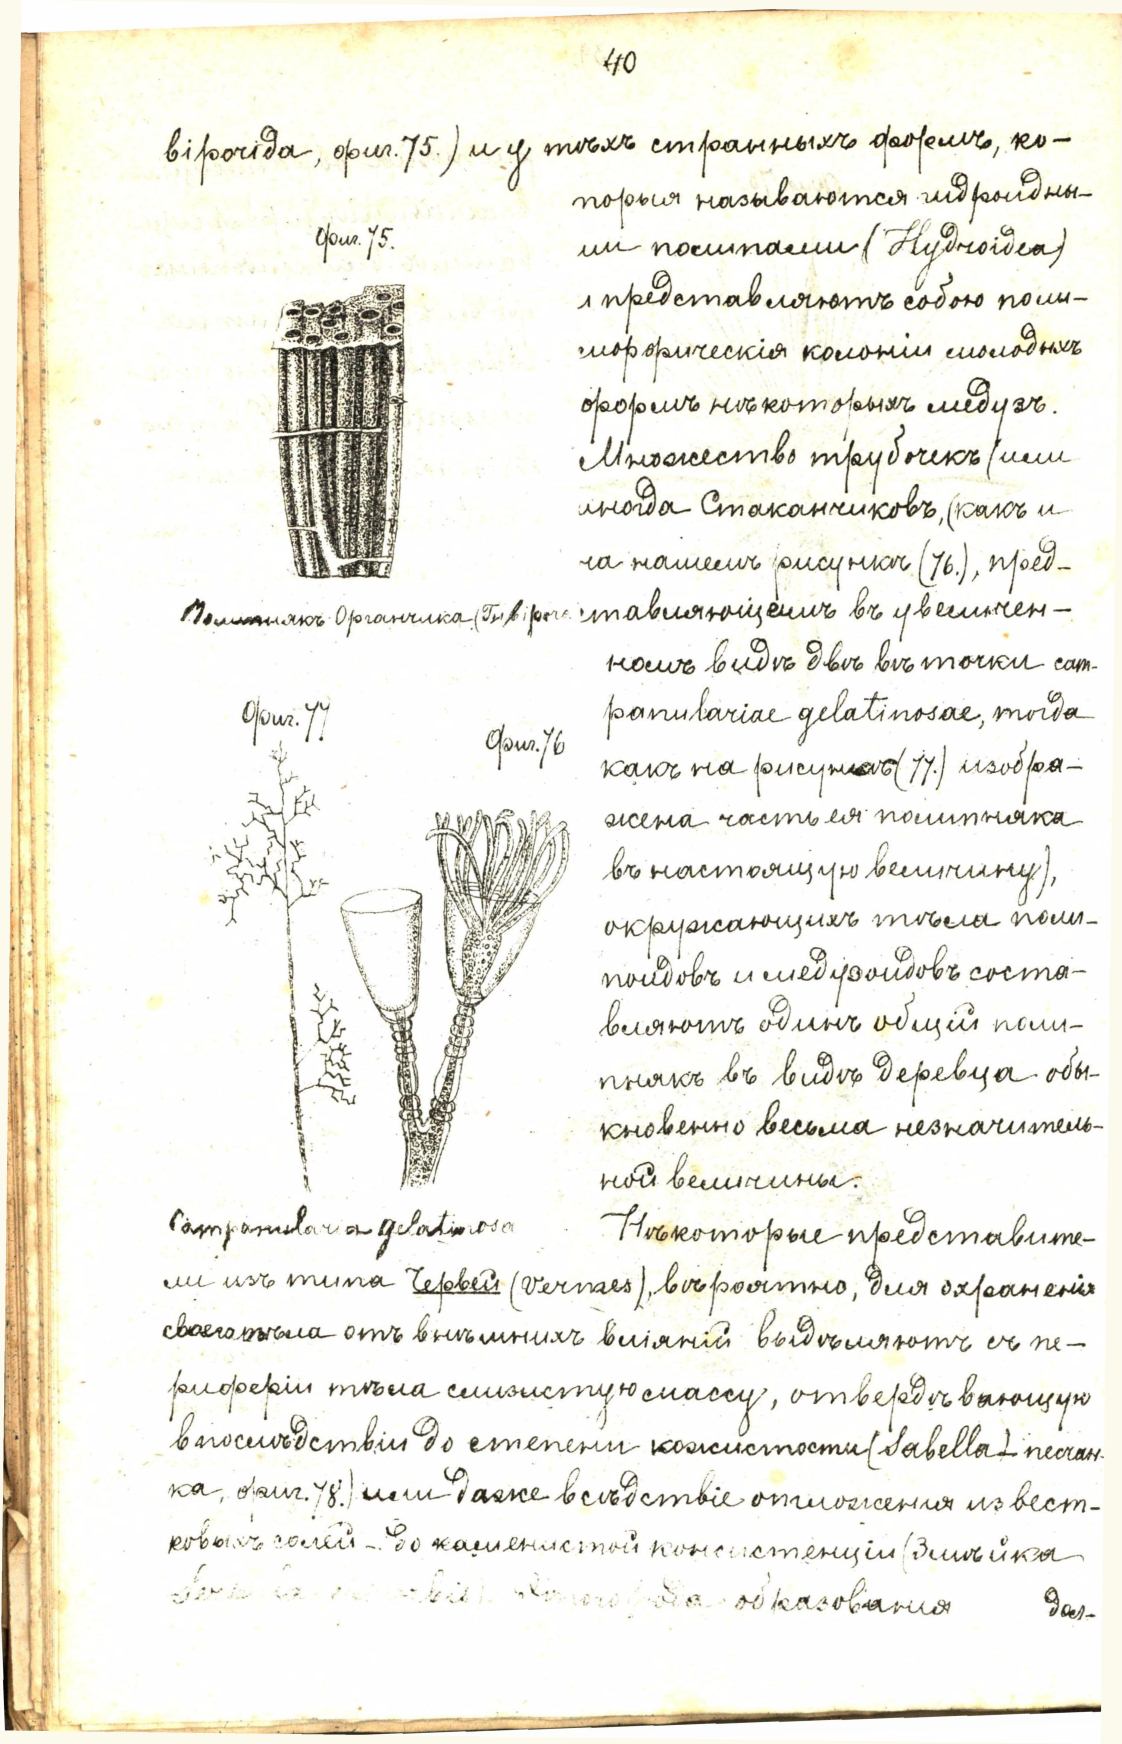 40
biporida, фиг. 75.) и у тѣхъ странныхъ формъ, ко-
торыя называются гидроидны-
ми полипами (Hydroidea)
и представляютъ собою поли-
морфическія колоніи молодыхъ
формъ нѣкоторыхъ медузъ.
Множество трубочекъ (или
иногда Стаканчиковъ, (какъ и
на нашемъ рисункѣ (76.), пред-
ставляющемъ въ увеличен-
номъ видѣ двѣ вѣточки cam-
panulariae gelatinosae, тогда
какъ на рисункѣ (77.) изобра-
жена часть ея полипняка
въ настоящую величину),
окружающихъ тѣла поли-
поидовъ и медузоидовъ соста-
вляютъ одинъ общій поли-
пнякъ въ видѣ деревца обы-
кновенно весьма незначитель-
ной величины.
Фиг. 75.
Полипнякъ Органчика
Фиг. 77
Фиг. 76
Campanularia gelatinosa
Нѣкоторые представите-
ли изъ типа Червей (Vermes), вѣроятно, для охраненія
своего тѣла отъ внѣшнихъ вліяній выдѣляютъ съ пе-
риферіи тѣла слизистую массу, отвердѣвающую
впослѣдствіи до степени кожистости (Sabella песчан-
ка, фиг. 78.) или даже вслѣдствіе отложенія извест-
ковыхъ солей - до каменистой консистенціи (Змѣйка
образованія дол-